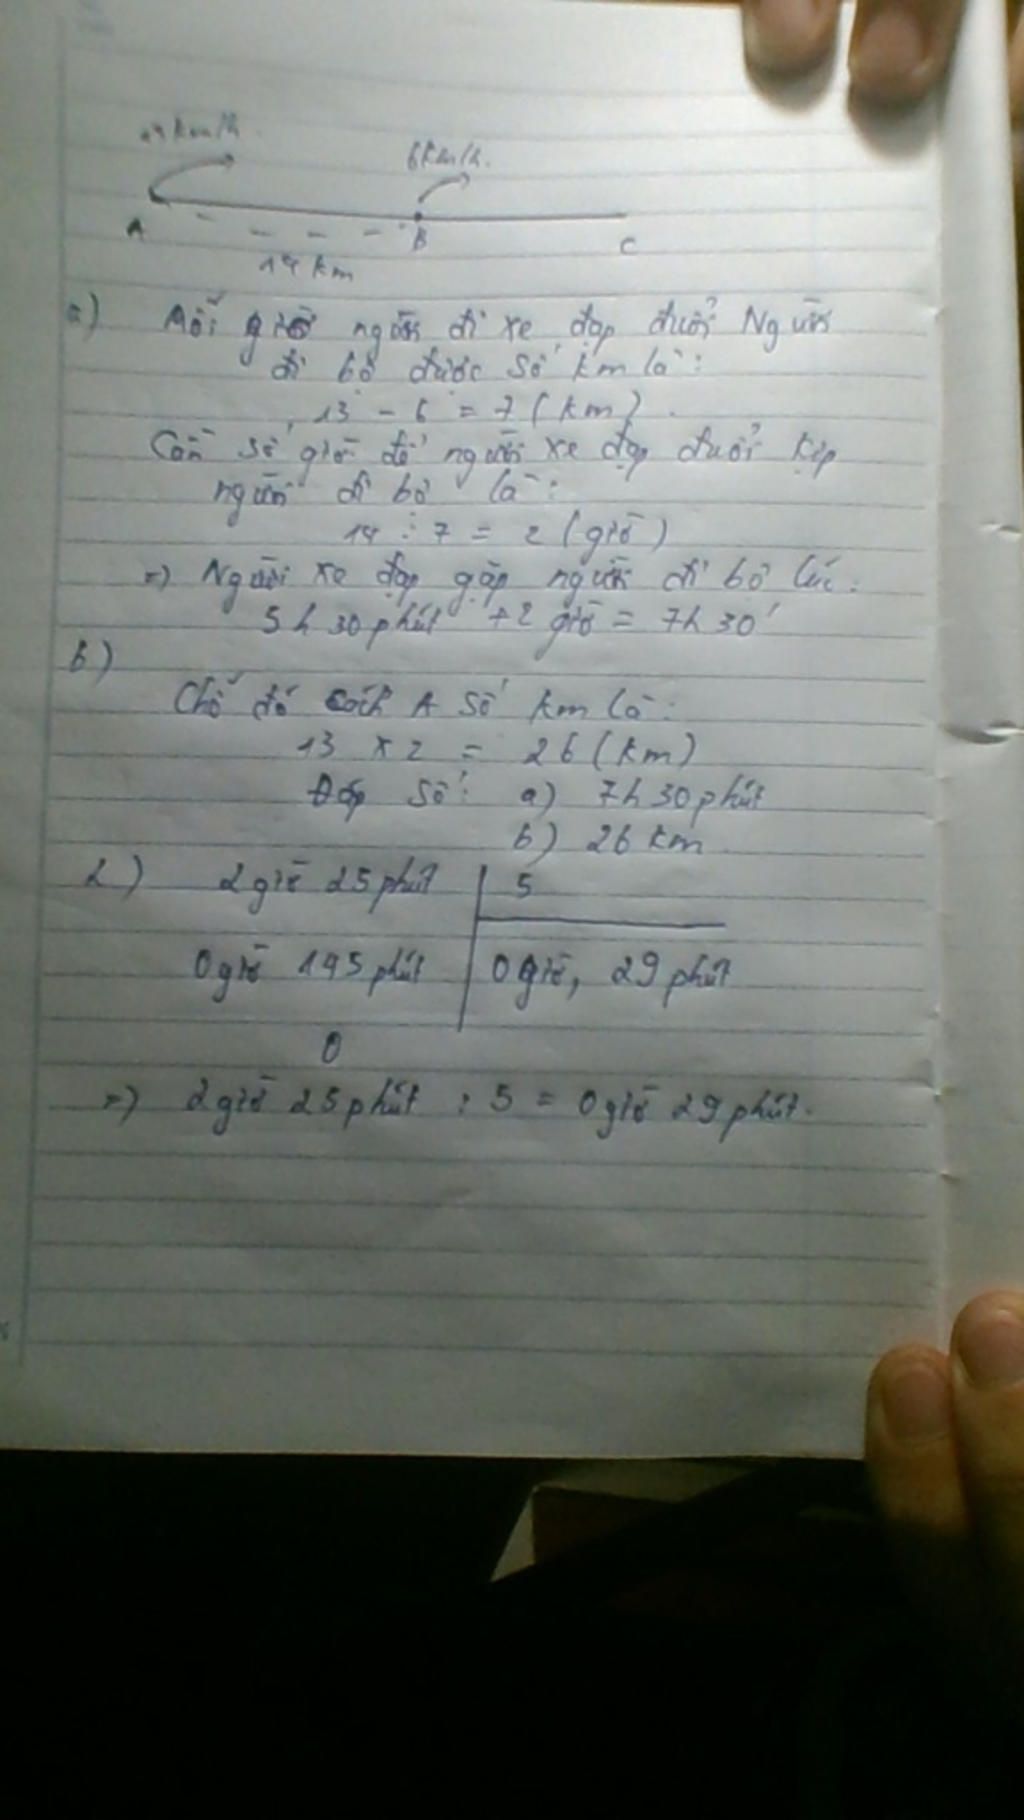 6km/h.
A
B
C
14 km
a) Mỗi giờ người đi xe đạp đuổi Người
đi bộ được số km là:
13 - 6 = 7 (km).
Cần số giờ để người xe đạp đuổi kịp
người đi bộ là:
14 : 7 = 2 (giờ)
=) Người xe đạp gặp người đi bộ lúc:
5h 30 phút + 2 giờ = 7h 30'
b)
Chỗ đó cách A số km là:
13 x 2 = 26 (km)
Đáp số: a) 7h 30 phút
b) 26 km
2) 2 giờ 25 phút 5
0 giờ 145 phút 0 giờ, 29 phút
0
=) 2 giờ 25 phút : 5 = 0 giờ 29 phút.